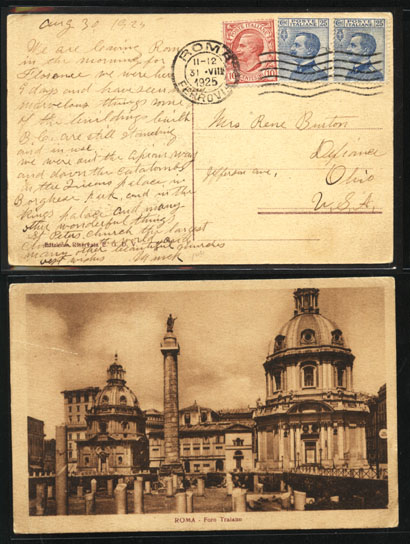 Aug 30 1925
We are leaving Rome
in the morning for
Florence we were here
9 days and have seen
marvelous things some
of the buildings built
B.C. are still standing
and in use,
we were out the apian way
and down the catatombs
in the palace in
Borghese Park, and in the
Kings palace and many
other wonderful things
St Peters church the largest
Church in the world and
many other beautiful churches
best wishes
ROMA
11-12
31 · VIII
1925
FERROVIA
Mrs Rene Burton
Jefferson ave,
Defiance
Ohio
U.S.A.
ROMA - Foro Traiano